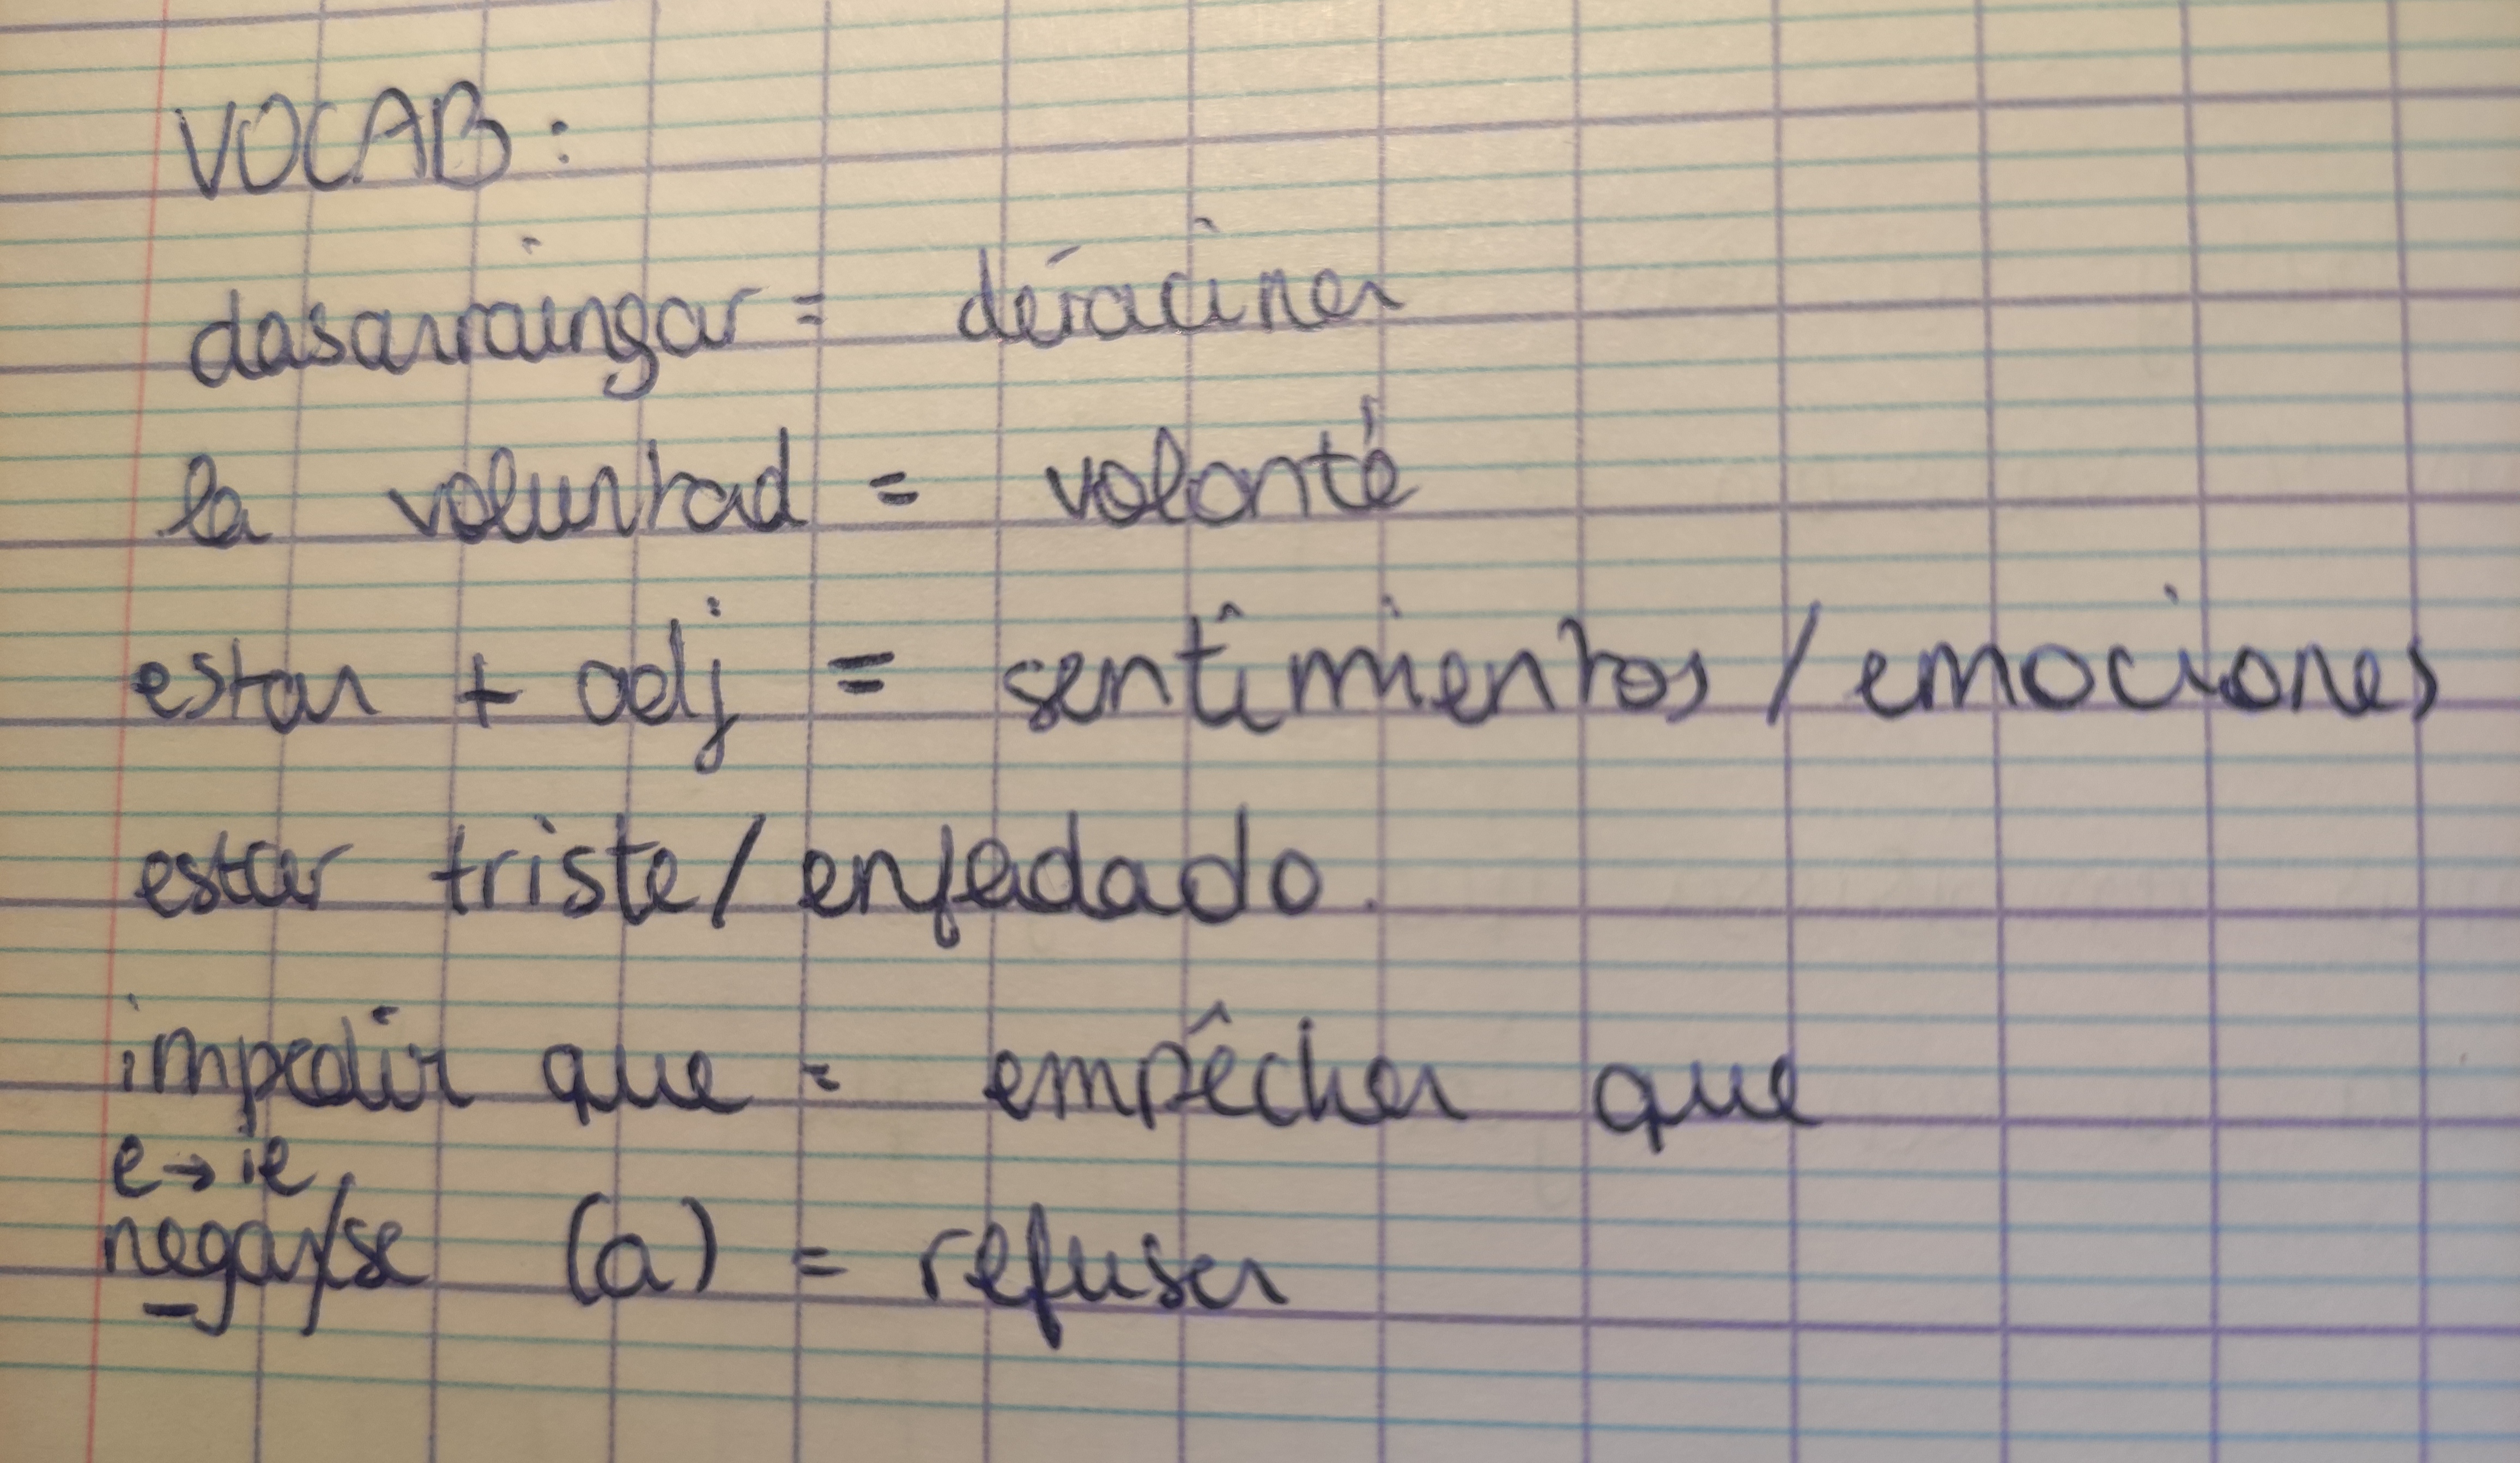 VOCAB :
dasarraingar = déraciner
la voluntad = volonté
estar + adj = sentimientos / emociones
estar triste / enfadado.
impedir que = empêcher que
e → ie
negar/se (a) = refuser